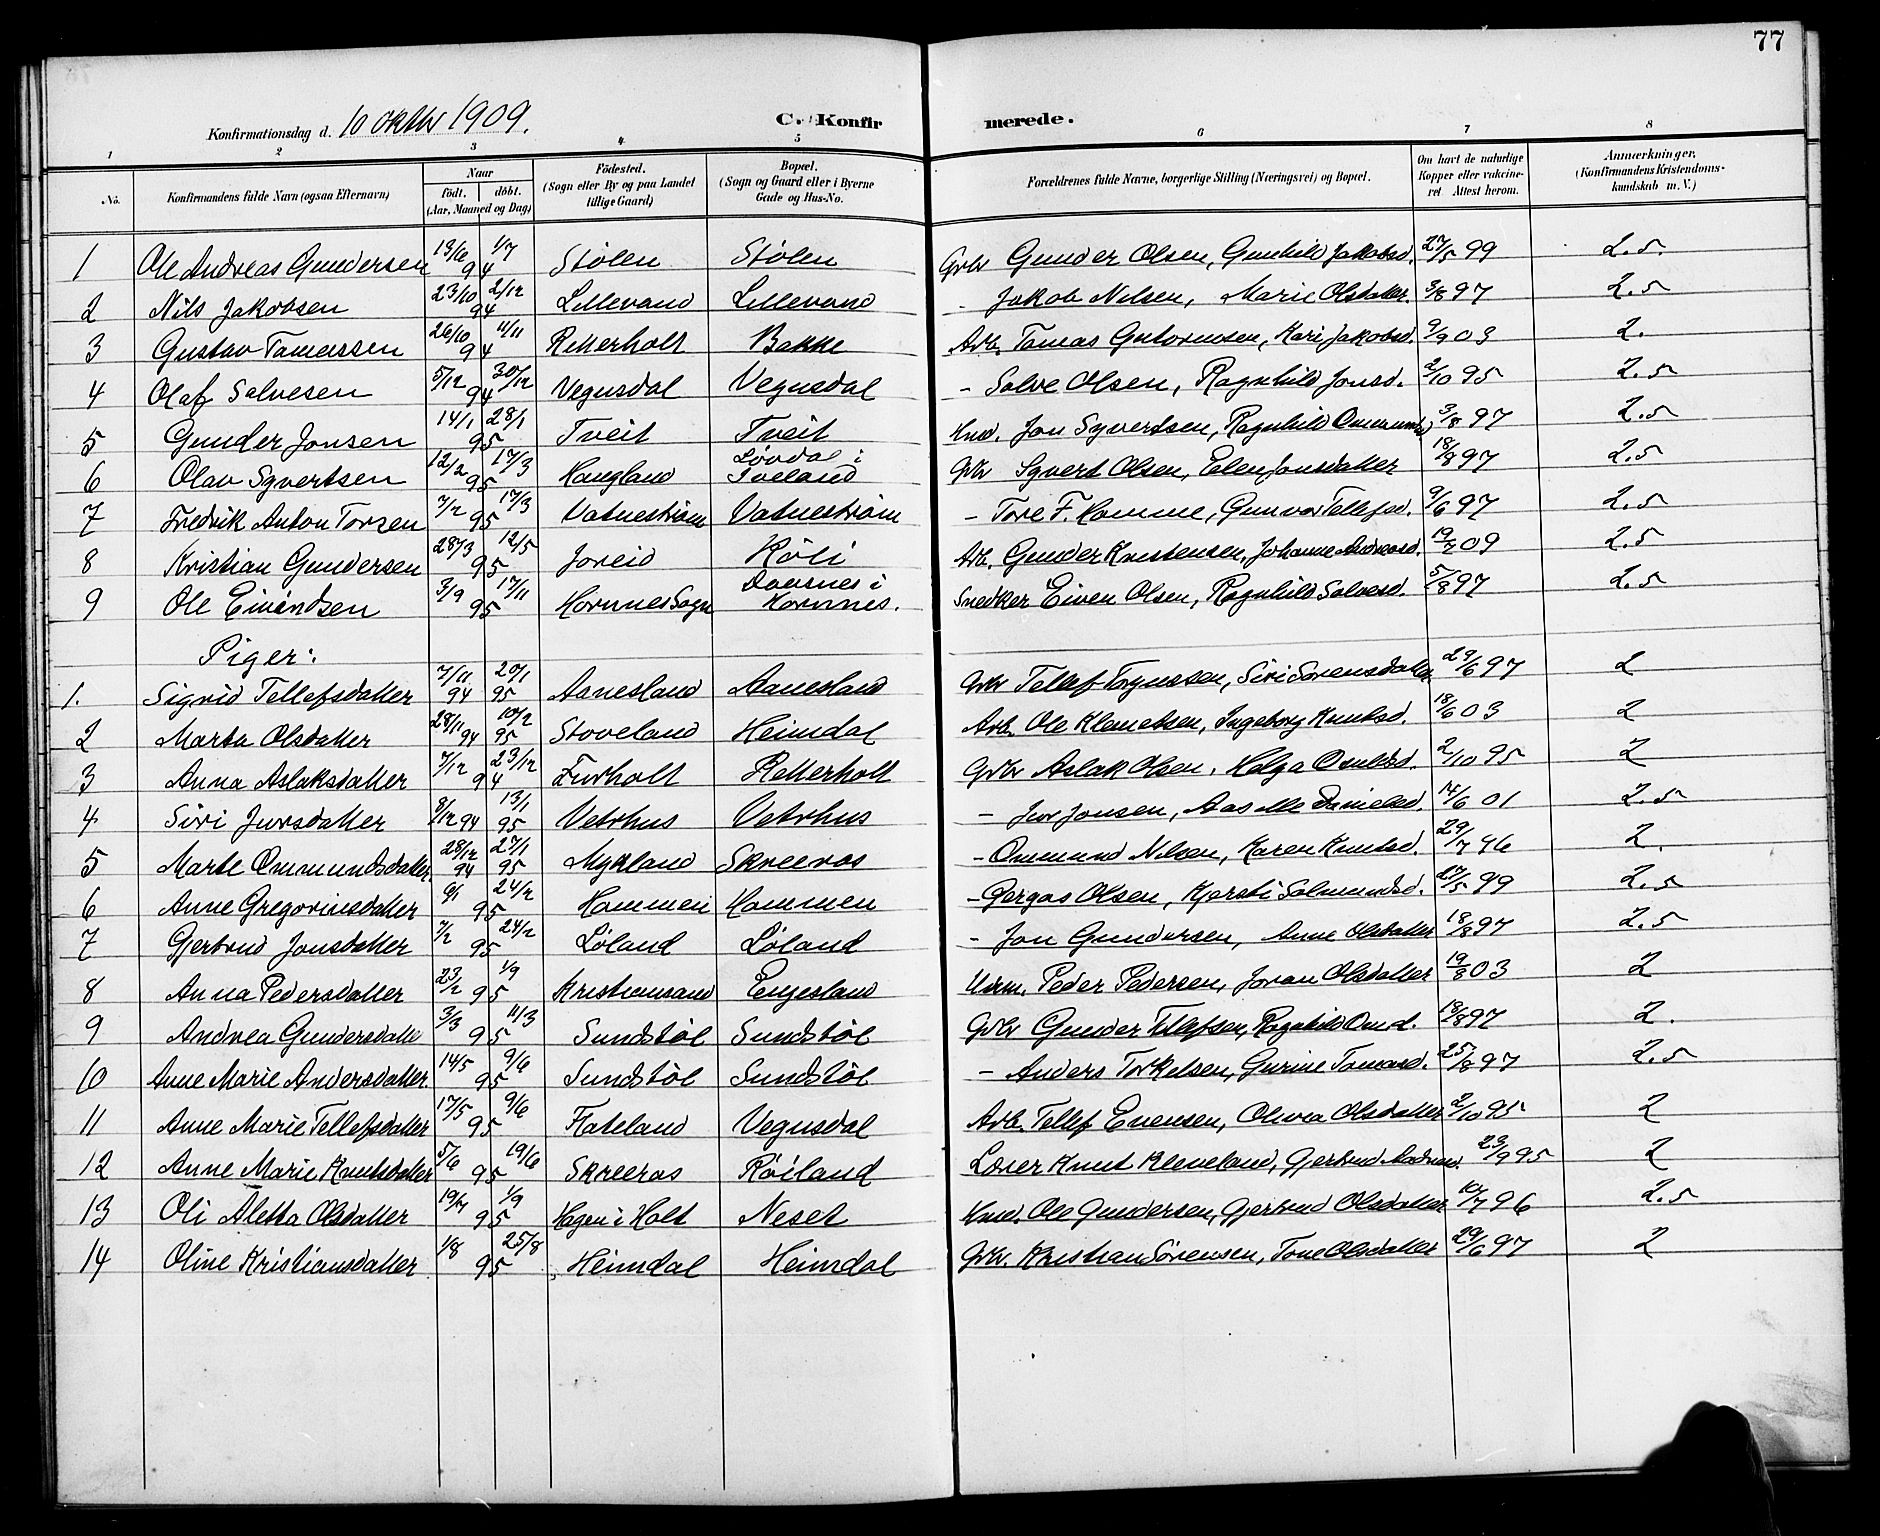 77
Konfirmationsdag d. 10 oktbr 1909.
C. Konfirmerede.
1 2 3 4 5 6 7 8
No. Konfirmandens fulde Navn (ogsaa Efternavn) Naar født. døbt. (Aar, Maaned og Dag) Fødested. (Sogn eller By og paa Landet tillige Gaard) Bopæl. (Sogn og Gaard eller i Byerne Gade og Hus-No. Forældrenes fulde Navne, borgerlige Stilling (Næringsvei) og Bopæl. Om havt de naturlige Kopper eller vaccineret Attest herom. Anmærkninger, (Konfirmandens Kristendomskundskab m. V.)
1 Ole Andreas Gundersen 13/6 1/7 94 Stølen Stølen Gbr Gunder Olsen, Gunhild Jakobsd. 27/5 99 2.5
2 Nils Jakobsen 23/10 2/12 94 Lillevand Lillevand - Jakob Nilsen, Marie Olsdatter 3/8 97 2.5
3 Gustav Tomassen 26/10 11/11 94 Retterholt Bakke Arb. Tomas Guttormsen, Kari Jakobsd. 9/9 03 2.
4 Olaf Salvesen 5/12 30/12 94 Vegusdal Vegusdal - Salve Olsen, Ragnhild Jonsd. 2/10 95 2.5
5 Gunder Jonsen 14/1 28/1 95 Tveit Tveit Hmd. Jon Syvertsen, Ragnhild 3/8 97 2.5
6 Olav Syvertsen 12/2 17/3 95 Haugland Løvdal i Iveland Gbr Syvert Olsen, Elen Jonsdatter 18/8 97 2.5
7 Fredrik Anton Torsen 7/2 17/3 95 Vatnestrøm Vatnestrøm - Tore F. Homme, Gunvor Tellefsd. 9/6 97 2.5
8 Kristian Gundersen 28/3 12/5 95 Joreid Røli Arb. Gunder Kristensen, Johanne Andreasd. 19/7 09 2.5
9 Ole Eivindsen 3/9 17/11 95 Hornnes Sogn Daasnes i Hornnes. Snedker Eiven Olsen, Ragnhild Salvesd. 5/8 97 2.5
Piger:
1. Sigrid Tellefsdatter 7/11 94 20/1 95 Aanesland Aanesland Gbr Tellef Torjussen, Siri Sørensdatter 29/6 97 2
2 Marta Olsdatter 28/11 94 10/2 95 Stoveland Heimdal Arb. Ole Klemetsen, Ingeborg Knutsd. 18/6 03 2
3 Anna Aslaksdatter 7/12 23/12 94 Furholt Retterholt Gbr Aslak Olsen, Helga Osuldsd. 2/10 95 2
4 Siri Jursdatter 8/12 94 13/1 95 Vetrhus Vetrhus - Jur Jonsen, Danielsd. 14/6 01 2.5
5 Marte Ommundsdatter 28/12 94 27/1 95 Mykland Skreeros - Ommund Nilsen, Karen Knutsd. 29/7 96 2.
6 Anne Gregoriusdatter 9/1 24/2 95 Hommen Hommen - Gergas Olsen, Kjersti Salmundsd. 27/5 99 2.5
7 Gjertrud Jonsdatter 7/2 24/2 95 Løland Løland - Jon Gundersen, Anne Olsdatter 18/8 97 2.5
8 Anna Pedersdatter 23/2 1/9 95 Kristiansand Engesland Urm. Peder Pedersen, Joran Olsdatter 19/8 03 2
9 Andrea Gundersdatte 3/3 11/3 95 Sundstøl Sundstøl Gbr Gunder Tellefsen, Ragnhild Omd. 18/8 97 2.
10 Anne Marie Andersdatter 14/5 9/6 95 Sundstøl Sundstøl - Anders Torkelsen, Gurine Tomasd. 25/8 97 2.5
11 Anne Marie Tellefsdatter 17/5 9/6 95 Flateland Vegusdal Arb. Tellef Evensen, Olivia Olsdatter 2/10 95 2
12 Anne Marie Knutsdatter 5/6 19/6 95 Skreeros Røiland Lærer Knut Kleveland, Gjertrud 23/9 95 2
13 Oli Aletta Olsdatter 19/7 1/9 95 Hagen i Holt Neset Hmd. Ole Gundersen, Gjertrud Olsdatter 10/7 96 2.5
14 Oline Kristiansdatter 1/8 25/8 95 Heimdal Heimdal Gbr. Kristian Sørensen, Tone Olsdatter 29/6 97 2